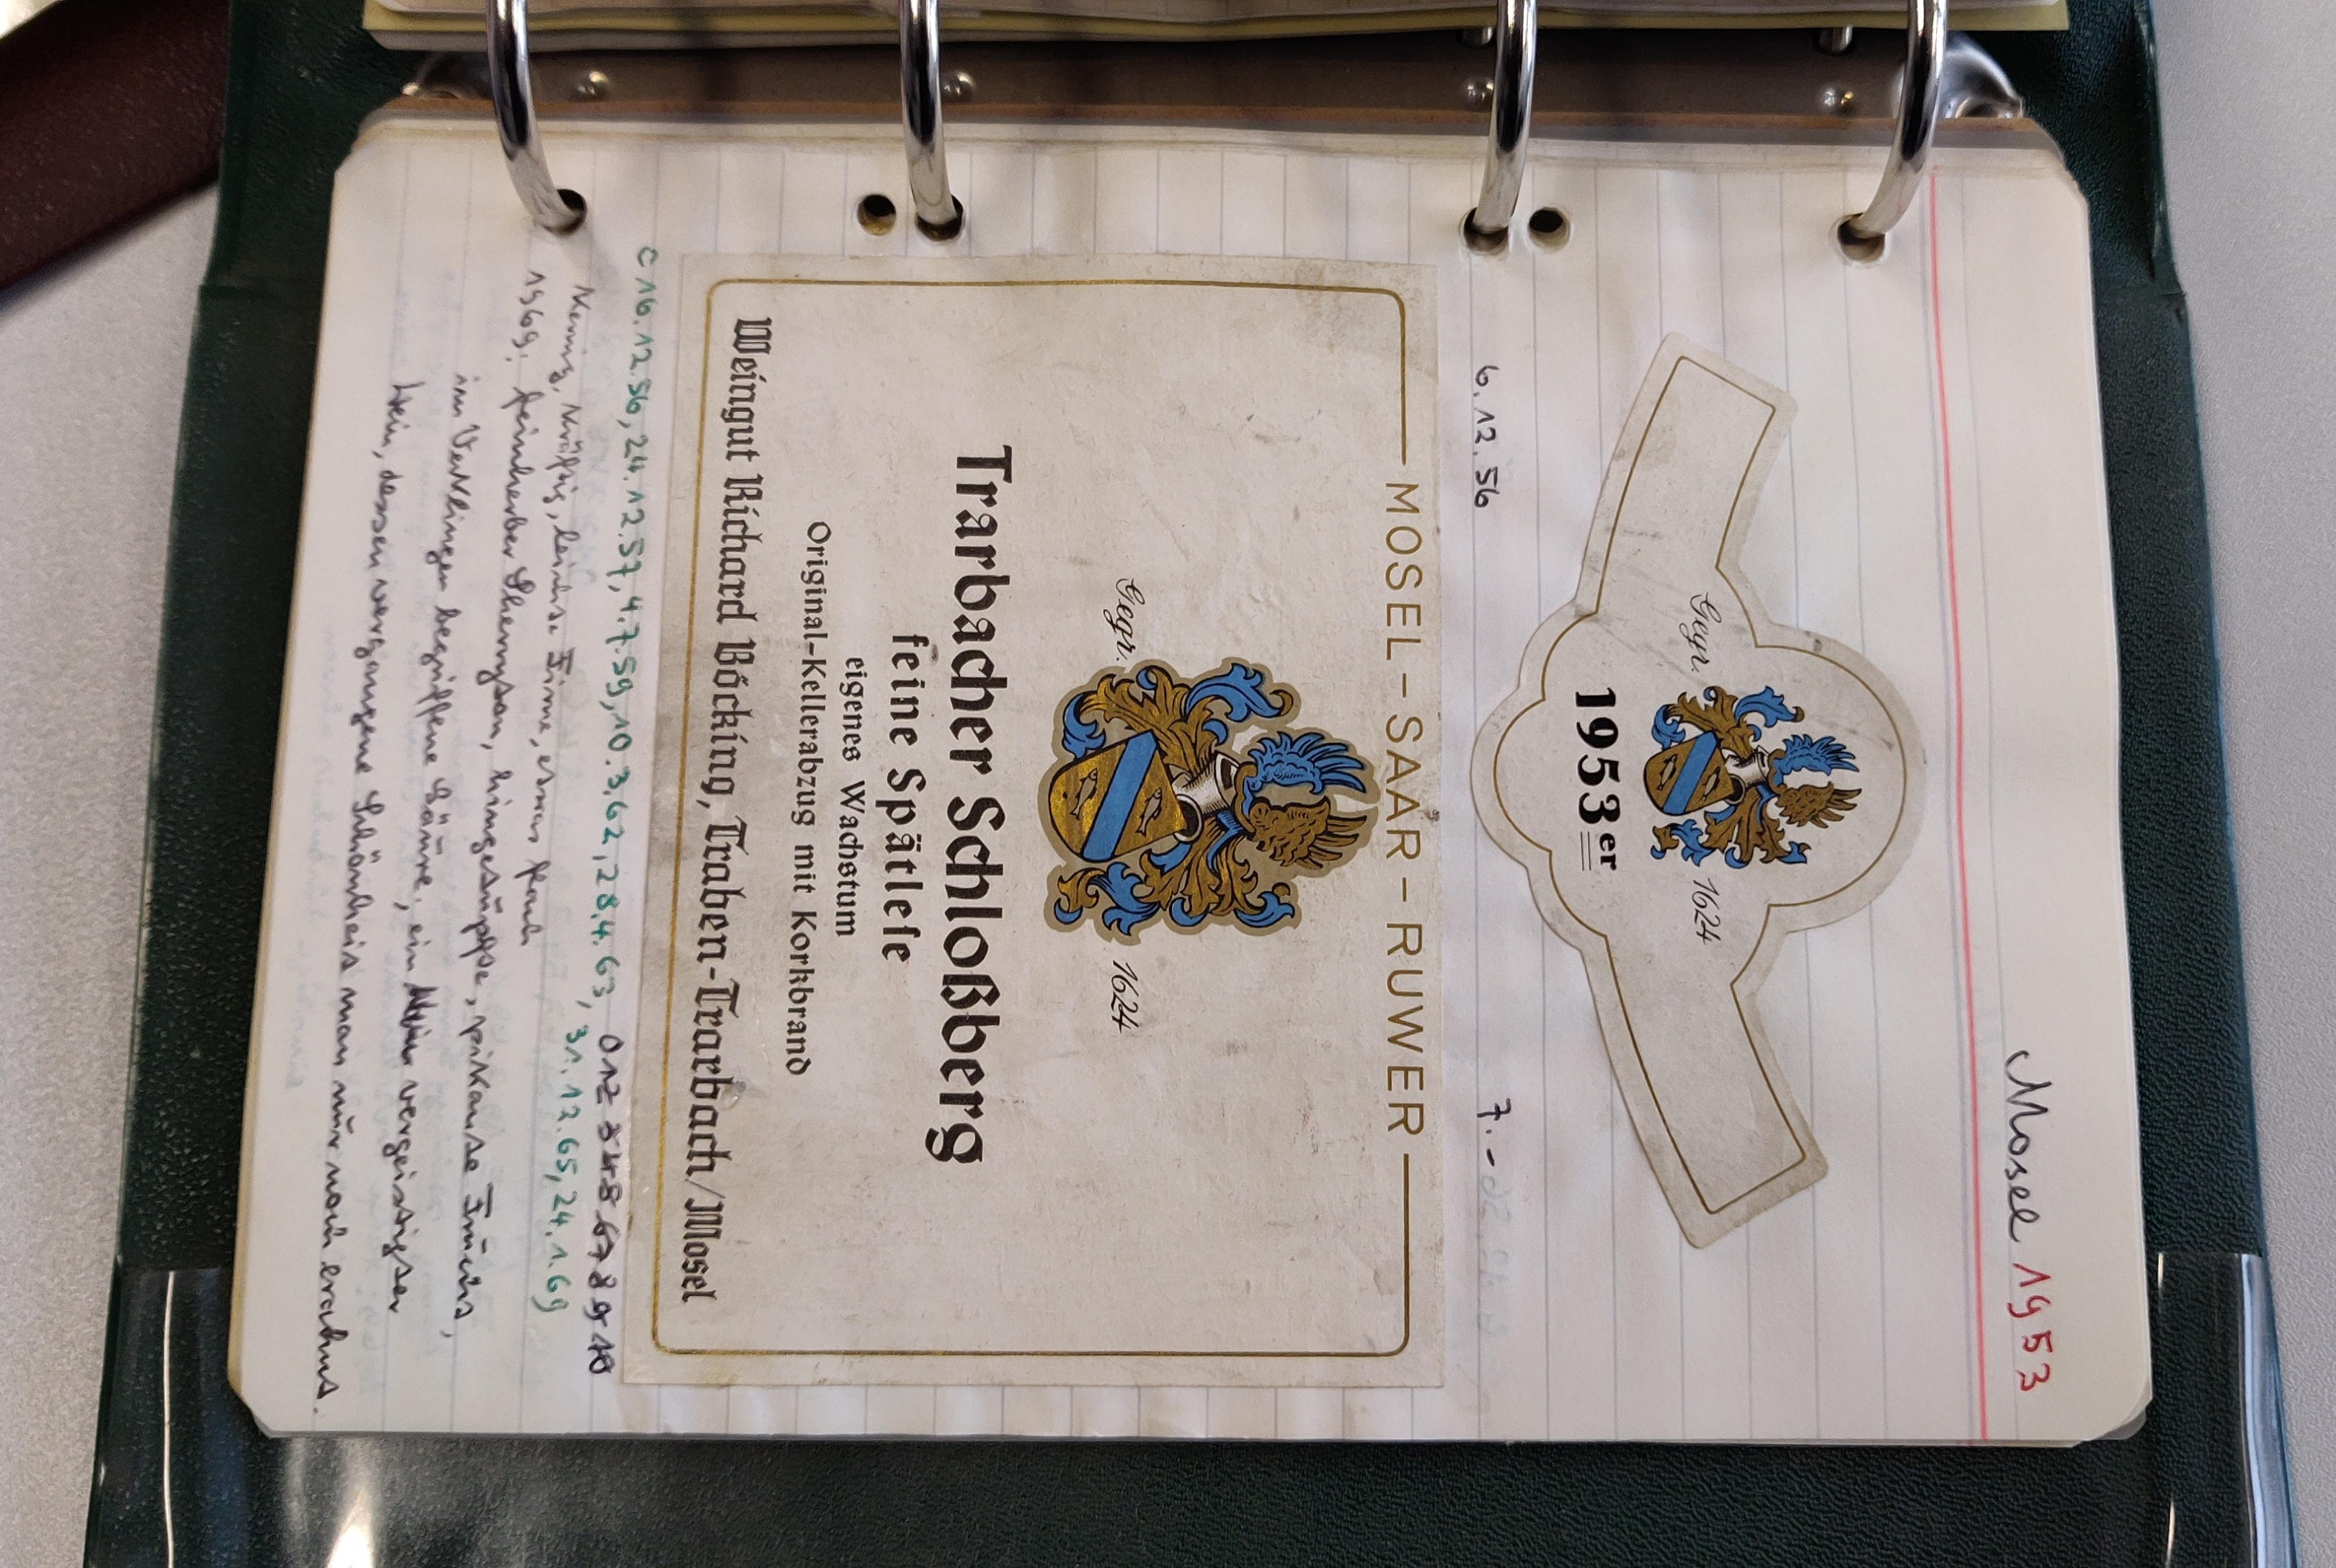 Mosel 1953
Gegr. 1624
1953er
6.12.56 7.-
MOSEL-SAAR-RUWER
Gegr. 1624
Trarbacher Schloßberg
feine Spätleſe
eigenes Wachstum
Original-Kellerabzug mit Korkbrand
Weingut Richard Böcking, Traben-Trarbach/Mosel
c 16.12.56, 24.12.57, 4.7.59, 10.3.62, 28.4.63, 0 1 2 3 4 5 6 7 8 9 10
31.12.65, 24.1.69
Kernig, kräftig, leichte Firne, etwas flach
1969: feinherber Sherryton, hingetupfte, pikante Frucht,
im Verklingen begriffene Säure, ein vergeistigter
Wein, dessen vergangene Schönheit man nur noch erahnt.